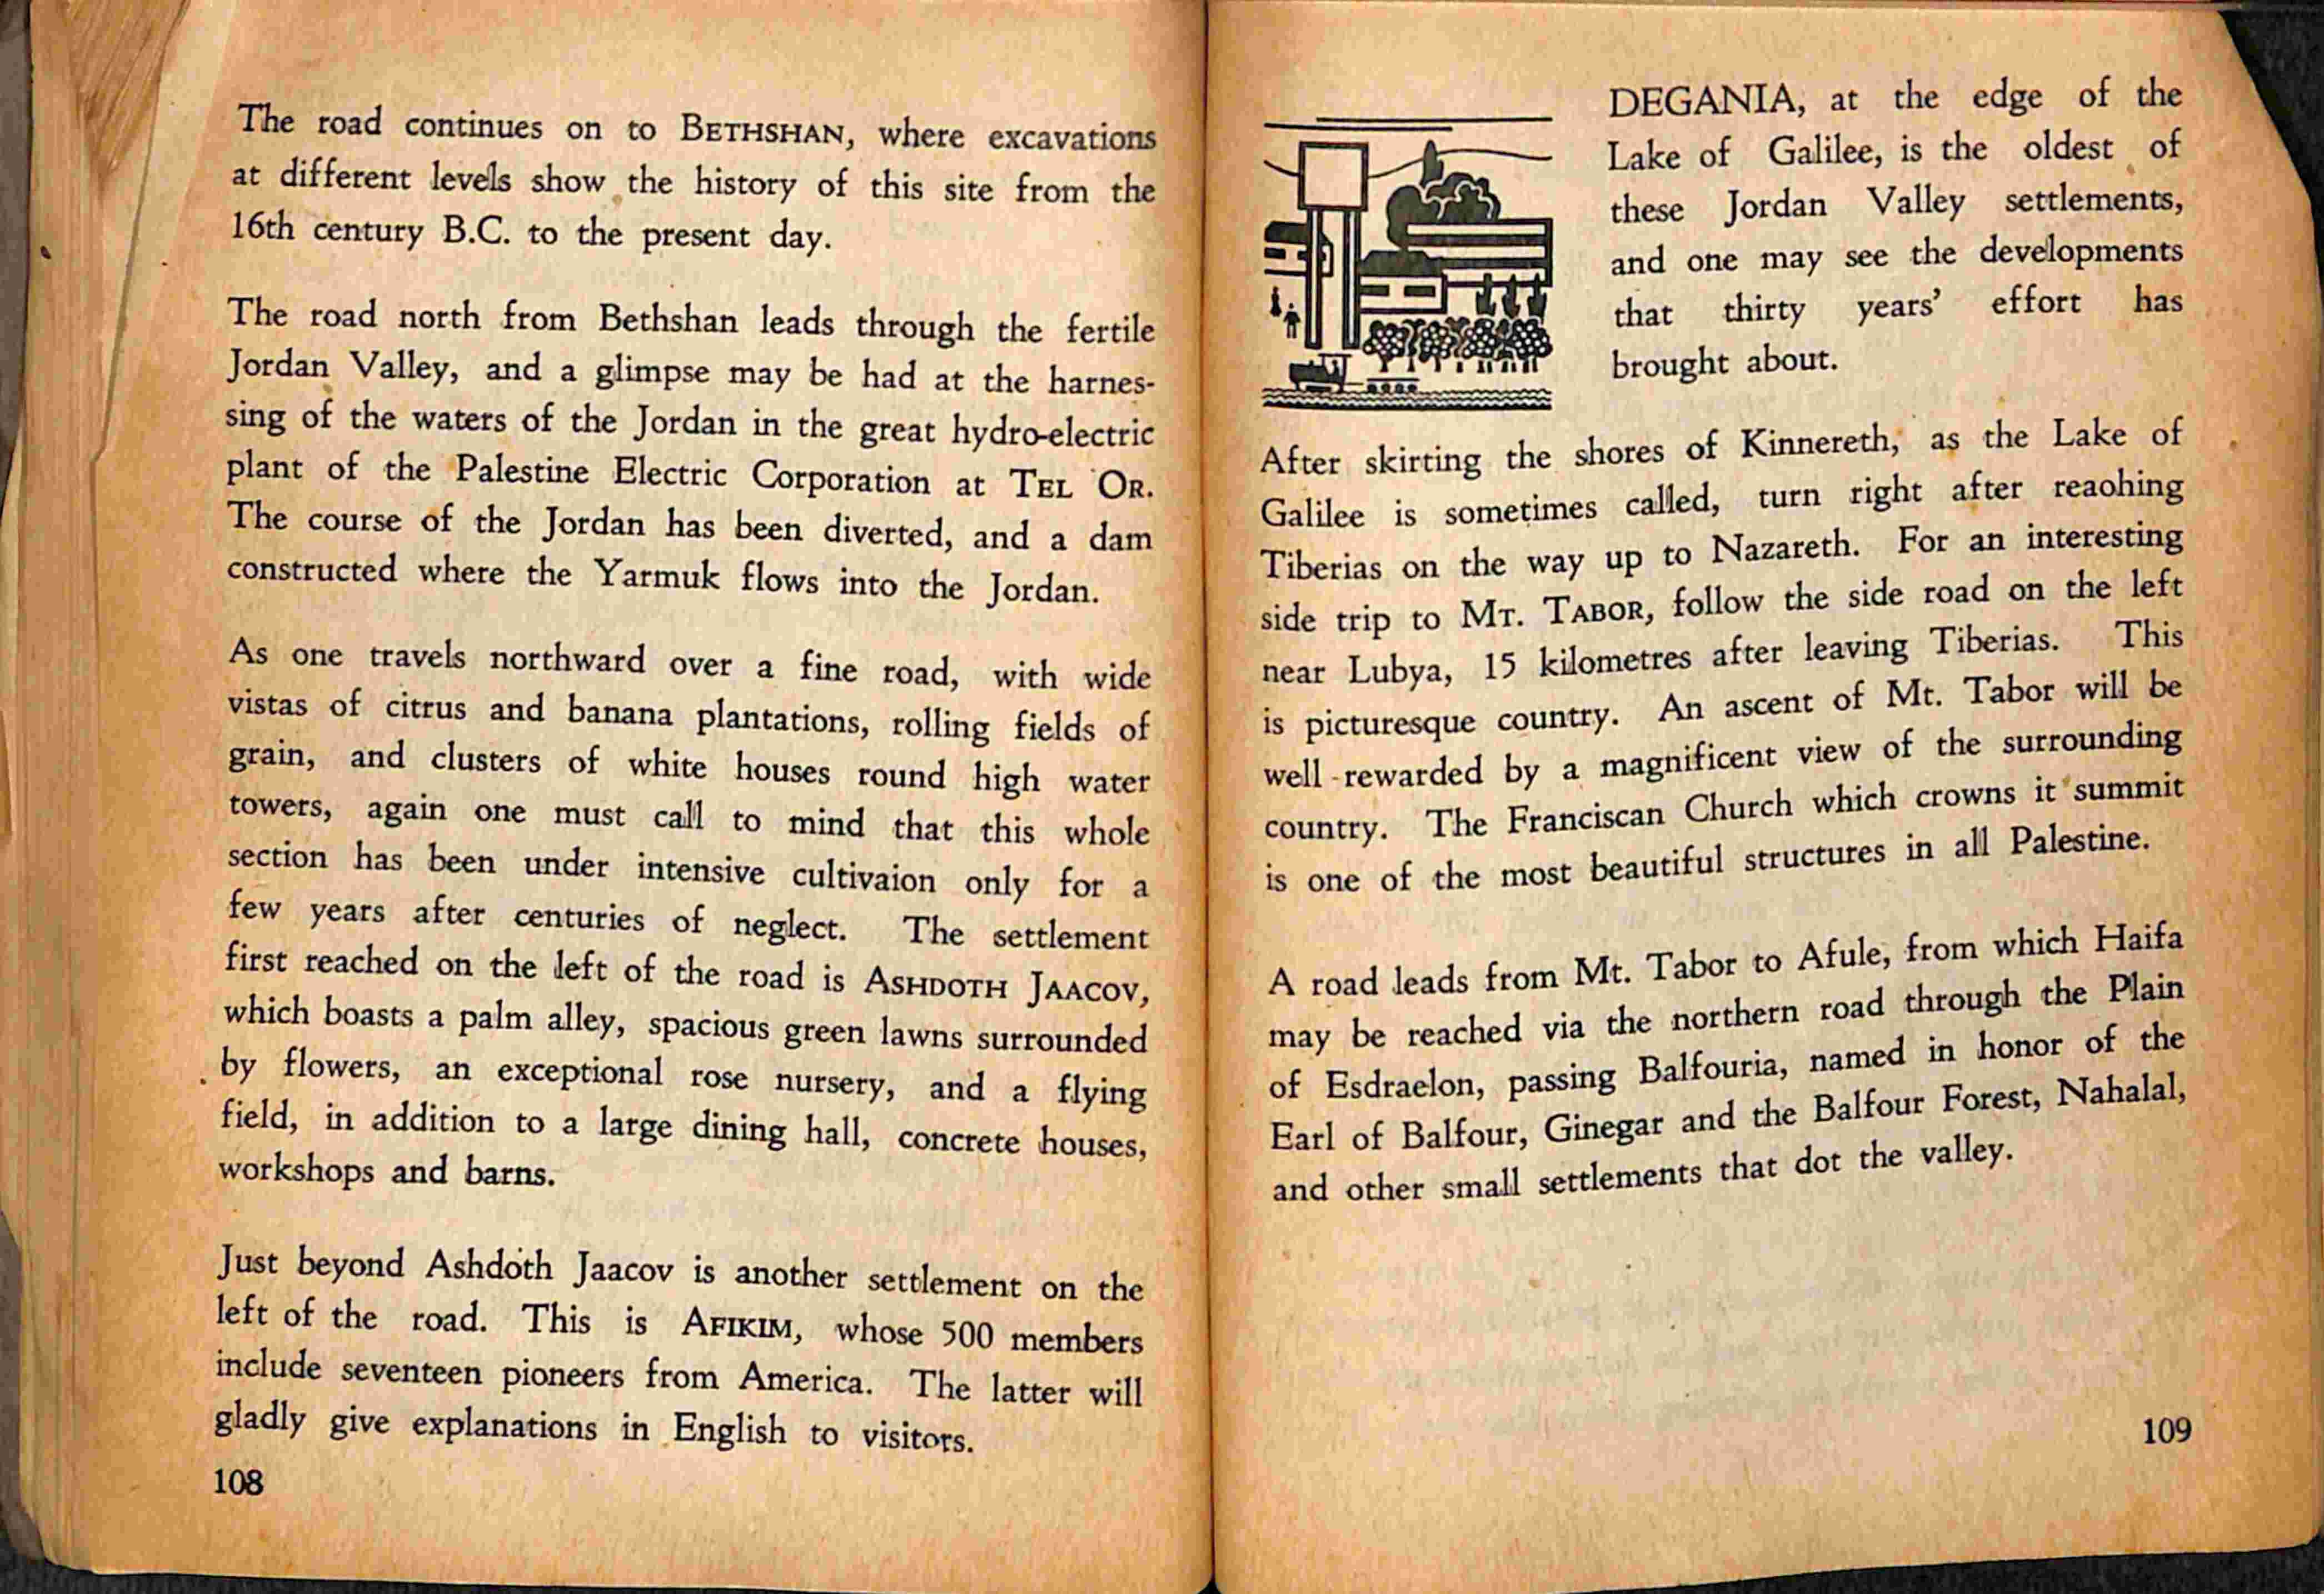 The road continues on to BETHSHAN, where excavations
at different levels show the history of this site from the
16th century B.C. to the present day.
The road north from Bethshan leads through the fertile
Jordan Valley, and a glimpse may be had at the harnes-
sing of the waters of the Jordan in the great hydro-electric
plant of the Palestine Electric Corporation at TEL OR.
The course of the Jordan has been diverted, and a dam
constructed where the Yarmuk flows into the Jordan.
As one travels northward over a fine road, with wide
vistas of citrus and banana plantations, rolling fields of
grain, and clusters of white houses round high water
towers, again one must call to mind that this whole
section has been under intensive cultivaion only for a
few years after centuries of neglect. The settlement
first reached on the left of the road is ASHDOTH JAACOV,
which boasts a palm alley, spacious green lawns surrounded
by flowers, an exceptional rose nursery, and a flying
field, in addition to a large dining hall, concrete houses,
workshops and barns.
Just beyond Ashdoth Jaacov is another settlement on the
left of the road. This is AFIKIM, whose 500 members
include seventeen pioneers from America. The latter will
gladly give explanations in English to visitors.
108
DEGANIA, at the edge of the
Lake of Galilee, is the oldest of
these Jordan Valley settlements,
and one may see the developments
that thirty years' effort has
brought about.
After skirting the shores of Kinnereth, as the Lake of
Galilee is sometimes called, turn right after reaohing
Tiberias on the way up to Nazareth. For an interesting
side trip to MT. TABOR, follow the side road on the left
near Lubya, 15 kilometres after leaving Tiberias. This
is picturesque country. An ascent of Mt. Tabor will be
well-rewarded by a magnificent view of the surrounding
country. The Franciscan Church which crowns it summit
is one of the most beautiful structures in all Palestine.
A road leads from Mt. Tabor to Afule, from which Haifa
may be reached via the northern road through the Plain
of Esdraelon, passing Balfouria, named in honor of the
Earl of Balfour, Ginegar and the Balfour Forest, Nahalal,
and other small settlements that dot the valley.
109